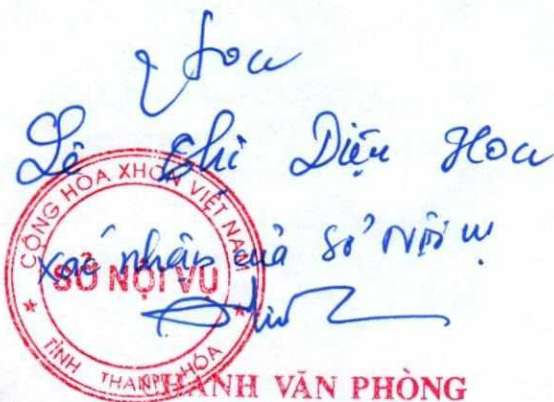 Hoa
Lê Thị Diệu Hoa
xác nhận của Sở Nội vụ
CỘNG HÒA XHCN VIỆT NAM
SỞ NỘI VỤ
TỈNH THANH HÓA
CHÁNH VĂN PHÒNG